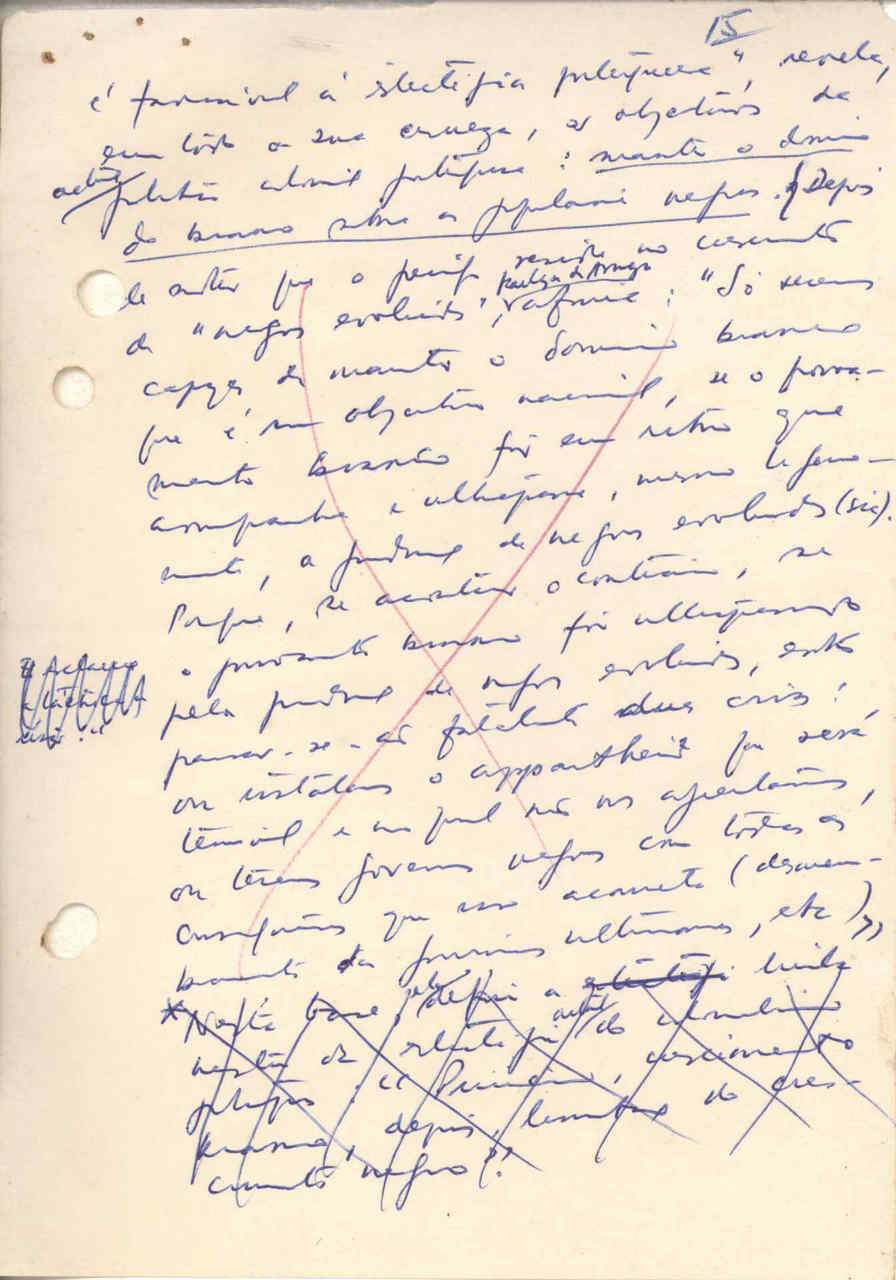 15
é favorável à estratégia portuguesa", revela,
em toda a sua crueza, os objectivos da
actual política colonial portuguesa: manter o domínio
do branco sobre as populações negras. Depois
de notar que o perigo reside no crescimento
de "negros evoluídos", Kaulza de Arriaga afirma: "Só seremos
capazes de manter o domínio branco
que é um objectivo nacional, se o povoa-
mento branco for em ritmo que
acompanhe e ultrapasse, mesmo ligeira-
mente, a produção de negros evoluídos (sic).
Porque, se acontecer o contrário, se
o povoamento branco for ultrapassado
pela produção de negros evoluídos, então
passar-se-ão fatalmente duas coisas:
ou instalamos o appartheid que será
terrível e no qual não nos aguentamos,
ou teremos governos negros com todas as
consequências que isso acarreta (desmem-
bramento das províncias ultramarinas, etc)"
* Nesta base, ele define a linha
mestra da estratégia actual do colonialismo
português: "Primeiro, crescimento
branco, depois, limitação do cres-
cimento negro".